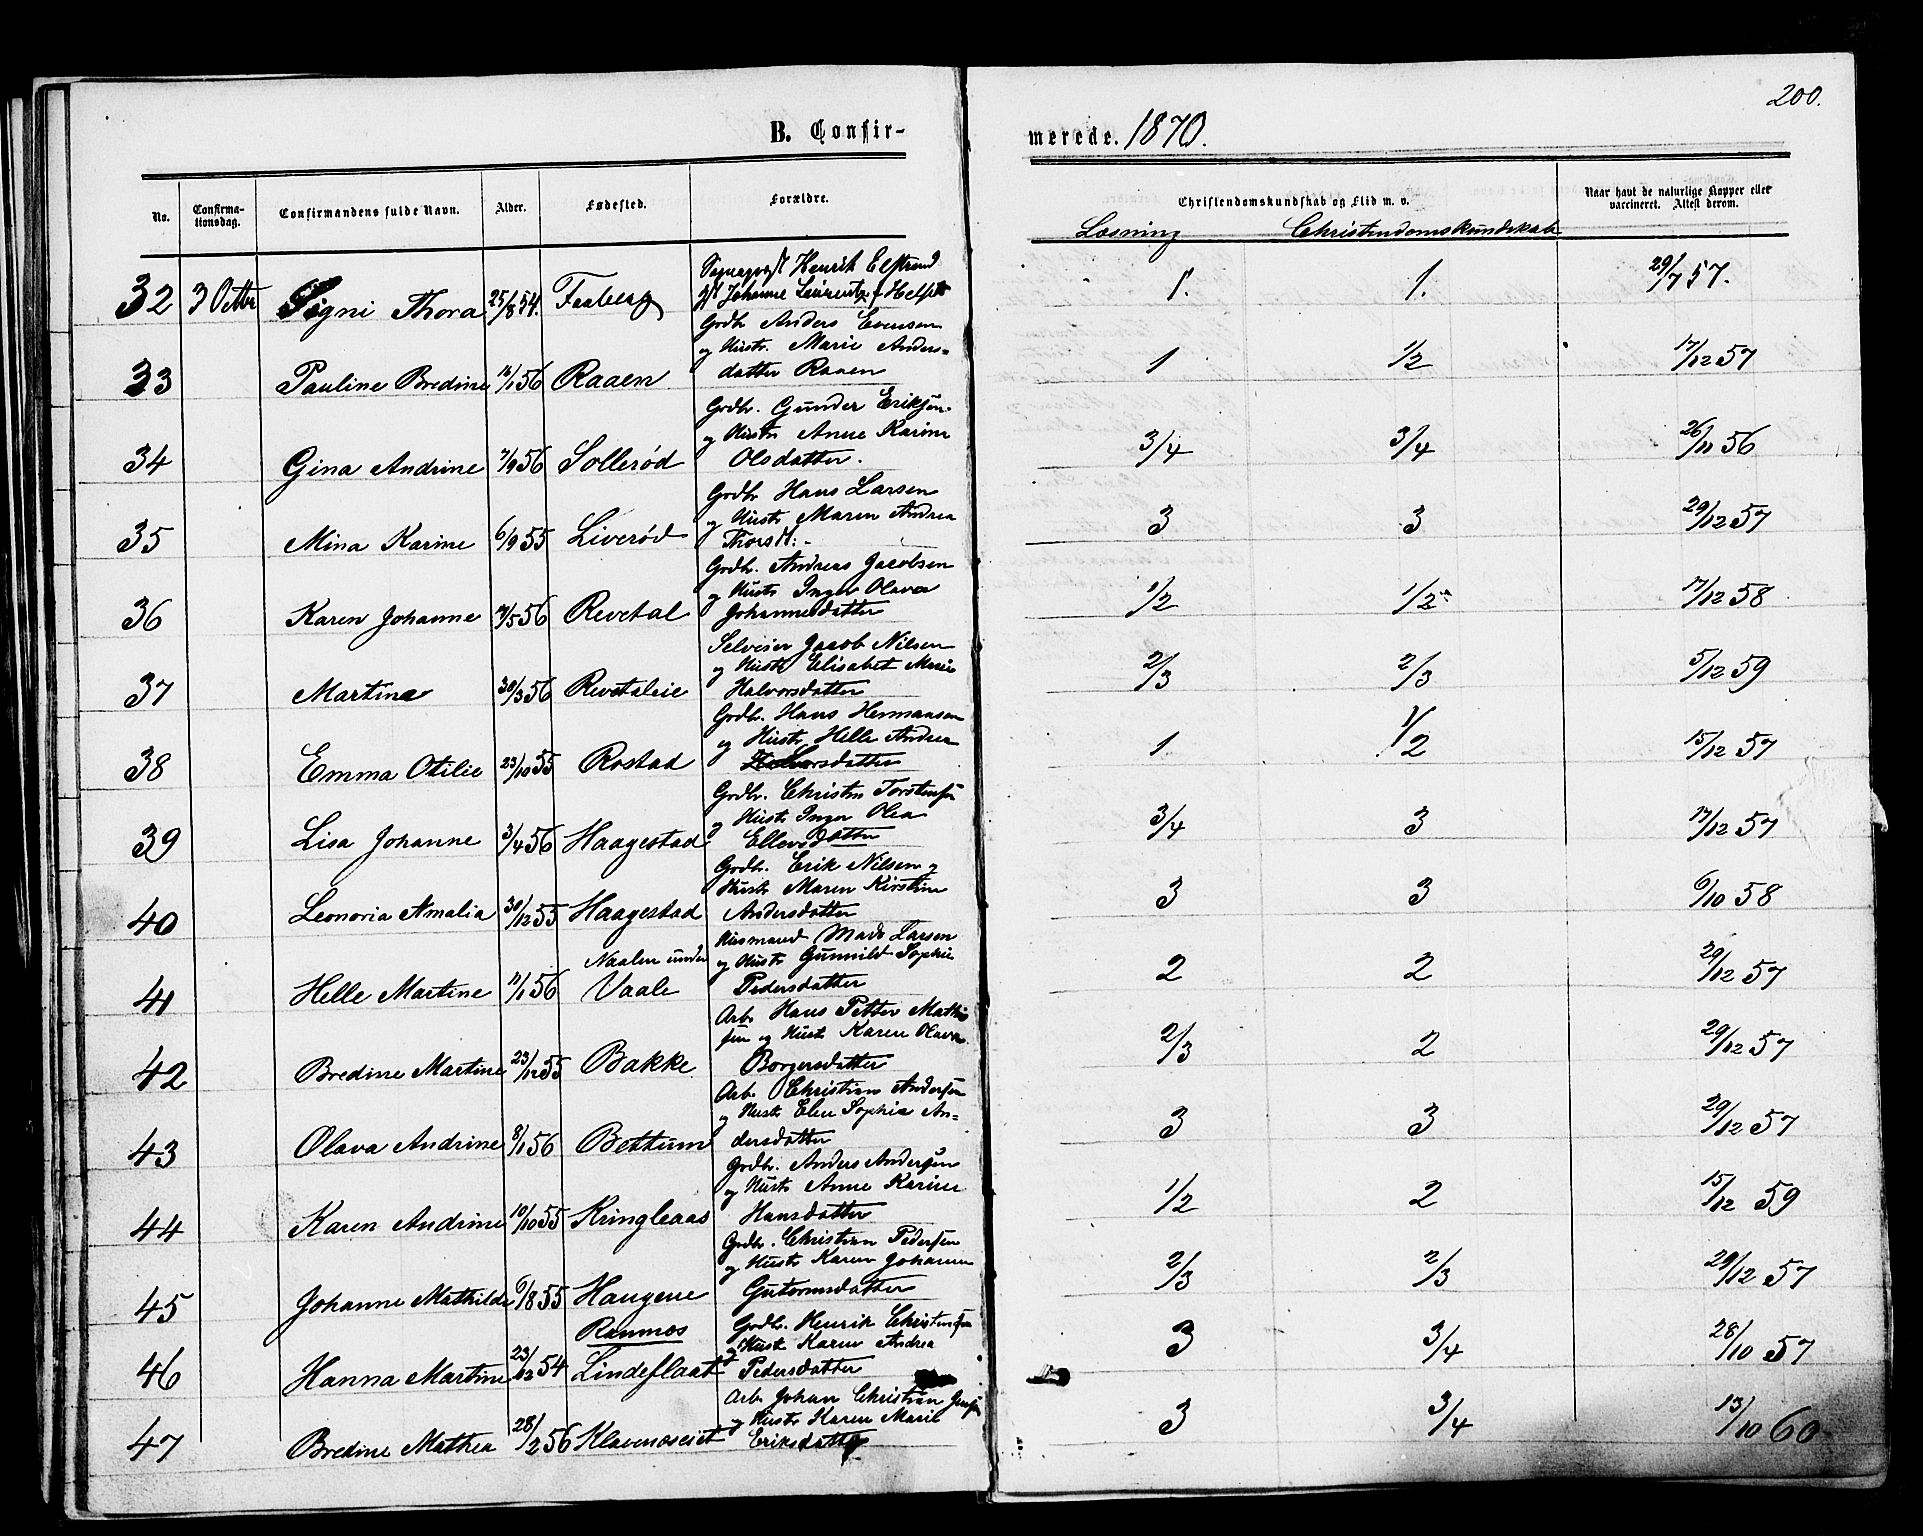 200.
B. Confir-
merede. 1870.
No.
Confirma-
tionsdag.
Confirmandens fulde Navn.
Alder.
Fødested.
Forældre.
Christendomskundskab og Flid m. v.
Naar havt de naturlige Kopper eller
vaccineret. Attest derom.
Læsning
Christendomskundskab
Henrik Elstrand
Johanne
32 3 Octbr Signi Thora 25/8 54. Faaberg 1. 1. 29/7 57.
Grdbr Anders Evensen
og Hustr. Marie Anders-
33 Pauline Bredine 1/56 Raaen datter Raaen 1 1/2 17/12 57
Grdbr. Gunder Eriksen
og Hustr Anne Karine
34 Gina Andrine 7/9 56 Sollerød Olsdatter. 3/4 3/4 26/11 56
Grdbr Hans Larsen
og Hustr Maren Andrea
35 Mina Karine 6/9 55 Liverød Thorsdt: 3 3 29/12 57
Grdbr. Andreas Jacobsen
og Hustr Inger Olava
36 Karen Johanne 7/5 56 Revetal Johannesdatter 1/2 1/2 17/12 58
Selveier Jacob Nilsen
og Hustr Elisabet Marie
37 Martine 30/3 56 Revetaleie Halvorsdatter 2/3 2/3 5/12 59
Grdbr. Hans Hermansen
og Hustr Helle Andrea
38 Emma Otilie 23/10 55 Rostad 1 1/2 15/12 57
Grdbr. Christen Torstensen
og Hustr Inger Olea
39 Lisa Johanne 3/4 56 Haagestad Ellevsdatter 3/4 3 17/12 57
Grdbr. Erik Nilsen og
Hustr Maren Kirstine
40 Leonoria Amalia 30/12 55 Haagestad Andersdatter 3 3 6/10 58
Husmand Mads Larsen
Naalen under og Hustr Gunnild Sophie
41 Helle Martine 11/1 56 Vaale Pedersdatter 2 2 29/12 57
Arb. Hans Petter Mathi
sen og Hustr Karen Olava
42 Bredine Martine 23/12 55 Bakke Borgersdatter 2/3 2 29/12 57
Arb. Christian Andersen
og Hustr Elen Sophie An-
43 Olava Andrine 8/1 56 Bettum dersdatter 3 3 29/12 57
Grdbr. Anders Andersen
og Hustr Anne Karine
44 Karen Andrine 10/10 55 Kringleaas Hansdatter 1/2 2 15/12 59
Grdbr. Christian Pedersen
og Hustr Karen Johanne
45 Johanne Mathilde 6/8 55 Haugene Gutormsdatter 2/3 2/3 29/12 57
Ranmos Grdbr. Henrik Christensen
og Hustr Karen Andrea
46 Hanna Martine 23/12 54 Lindeflaat Pedersdatter 3 3/4 28/10 57
Arb. Johan Christian
og Hustr Karen Marie
47 Bredine Mathea 28/2 56 Klavenæseiet Eriksdatter 3 3/4 13/10 60